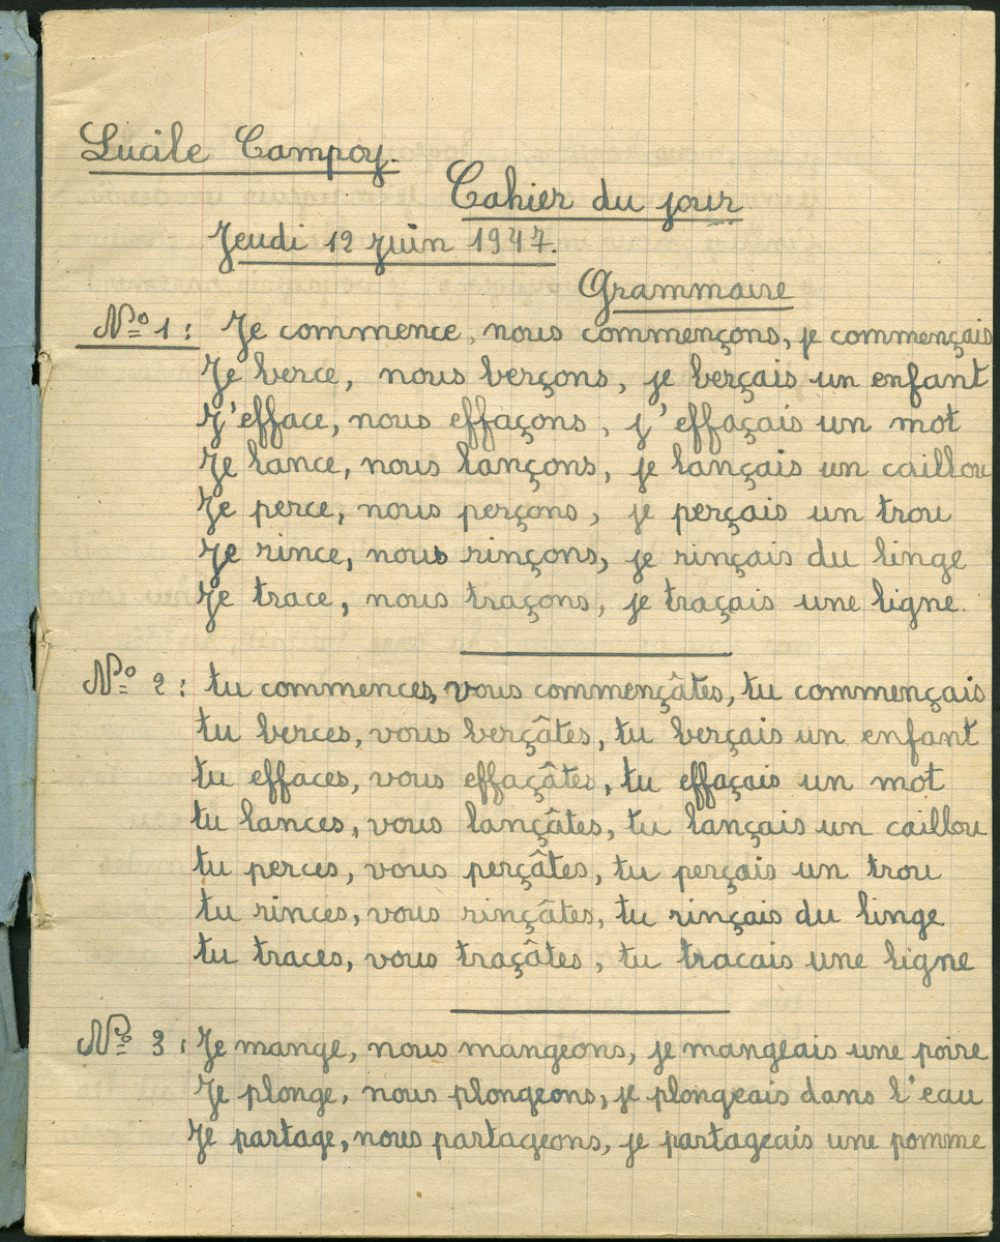 Lucile Campoy.
Cahier du jour
Jeudi 12 Juin 1947.
Grammaire
Nº 1 : Je commence, nous commençons, je commençais
Je berce, nous berçons, je berçais un enfant
J'efface, nous effaçons, j'effaçais un mot
Je lance, nous lançons, je lançais un caillou
Je perce, nous perçons, je perçais un trou
Je rince, nous rinçons, je rinçais du linge
Je trace, nous traçons, je traçais une ligne.
Nº 2 : tu commences, vous commençâtes, tu commençais
tu berces, vous berçâtes, tu berçais un enfant
tu effaces, vous effaçâtes, tu effaçais un mot
tu lances, vous lançâtes, tu lançais un caillou
tu perces, vous perçâtes, tu perçais un trou
tu rinces, vous rinçâtes, tu rinçais du linge
tu traces, vous traçâtes, tu tracais une ligne
Nº 3 : Je mange, nous mangeons, je mangeais une poire
Je plonge, nous plongeons, je plongeais dans l'eau
Je partage, nous partageons, je partageais une pomme